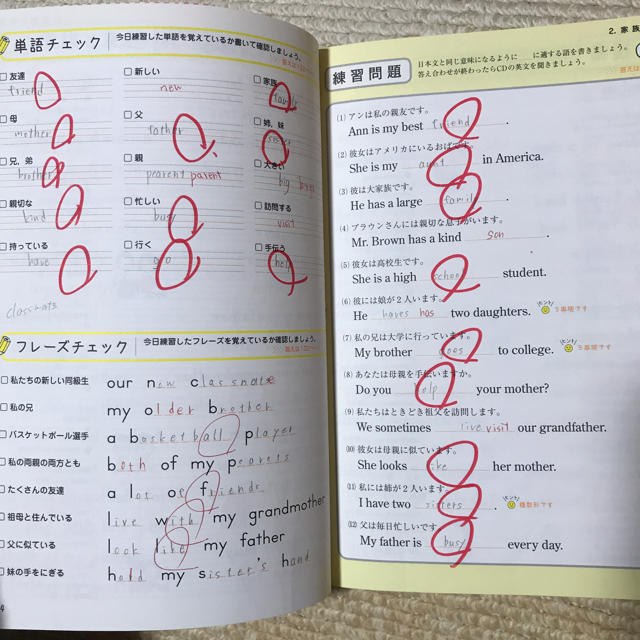 単語チェック
今日練習した単語を覚えているか書いて確認しましょう。
友達
friend
新しい
new
家族
family
母
mother
父
father
姉, 妹
sister
兄, 弟
brother
親
pearent parent
大きい
big
親切な
kind
忙しい
busy
訪問する
visit
持っている
have
行く
go
手伝う
help
classmate
フレーズチェック
今日練習したフレーズを覚えているか確認しましょう。
私たちの新しい同級生
our new classmate
私の兄
my older brother
バスケットボール選手
a basketball player
私の両親の両方とも
both of my pearets
たくさんの友達
a lot of friends
祖母と住んでいる
live with my grandmother
父に似ている
look like my father
妹の手をにぎる
hold my sister's hand
2. 家族
練習問題
日本文と同じ意味になるように に適する語を書きましょう。
答え合わせが終わったらCDの英文を聞きましょう。
(1) アンは私の親友です。
Ann is my best friend .
(2) 彼女はアメリカにいるおばです。
She is my aunt in America.
(3) 彼は大家族です。
He has a large famil .
(4) ブラウンさんには親切な息子がいます。
Mr. Brown has a kind son .
(5) 彼女は高校生です。
She is a high school student.
(6) 彼には娘が2人います。
He haves has two daughters.
ヒント! 3単現です
(7) 私の兄は大学に行っています。
My brother goes to college.
ヒント! 3単現です
(8) あなたは母親を手伝いますか。
Do you help your mother?
(9) 私たちはときどき祖父を訪問します。
We sometimes live visit our grandfather.
(10) 彼女は母親に似ています。
She looks like her mother.
(11) 私には姉が2人います。
I have two sisters .
ヒント! 複数形です
(12) 父は毎日忙しいです。
My father is busy every day.